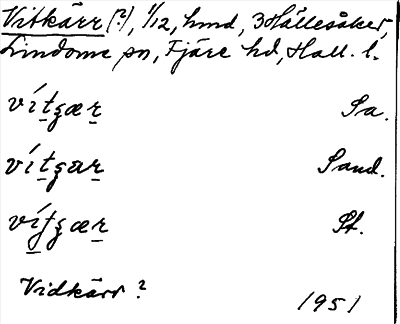 Vitkärr (?), 1/12, hmd, 3 Hällesåker,
Lindome sn, Fjäre hd, Hall. l.
vítgær Sa.
vítgar Sand.
vítgær St.
Vidkärr?
1951